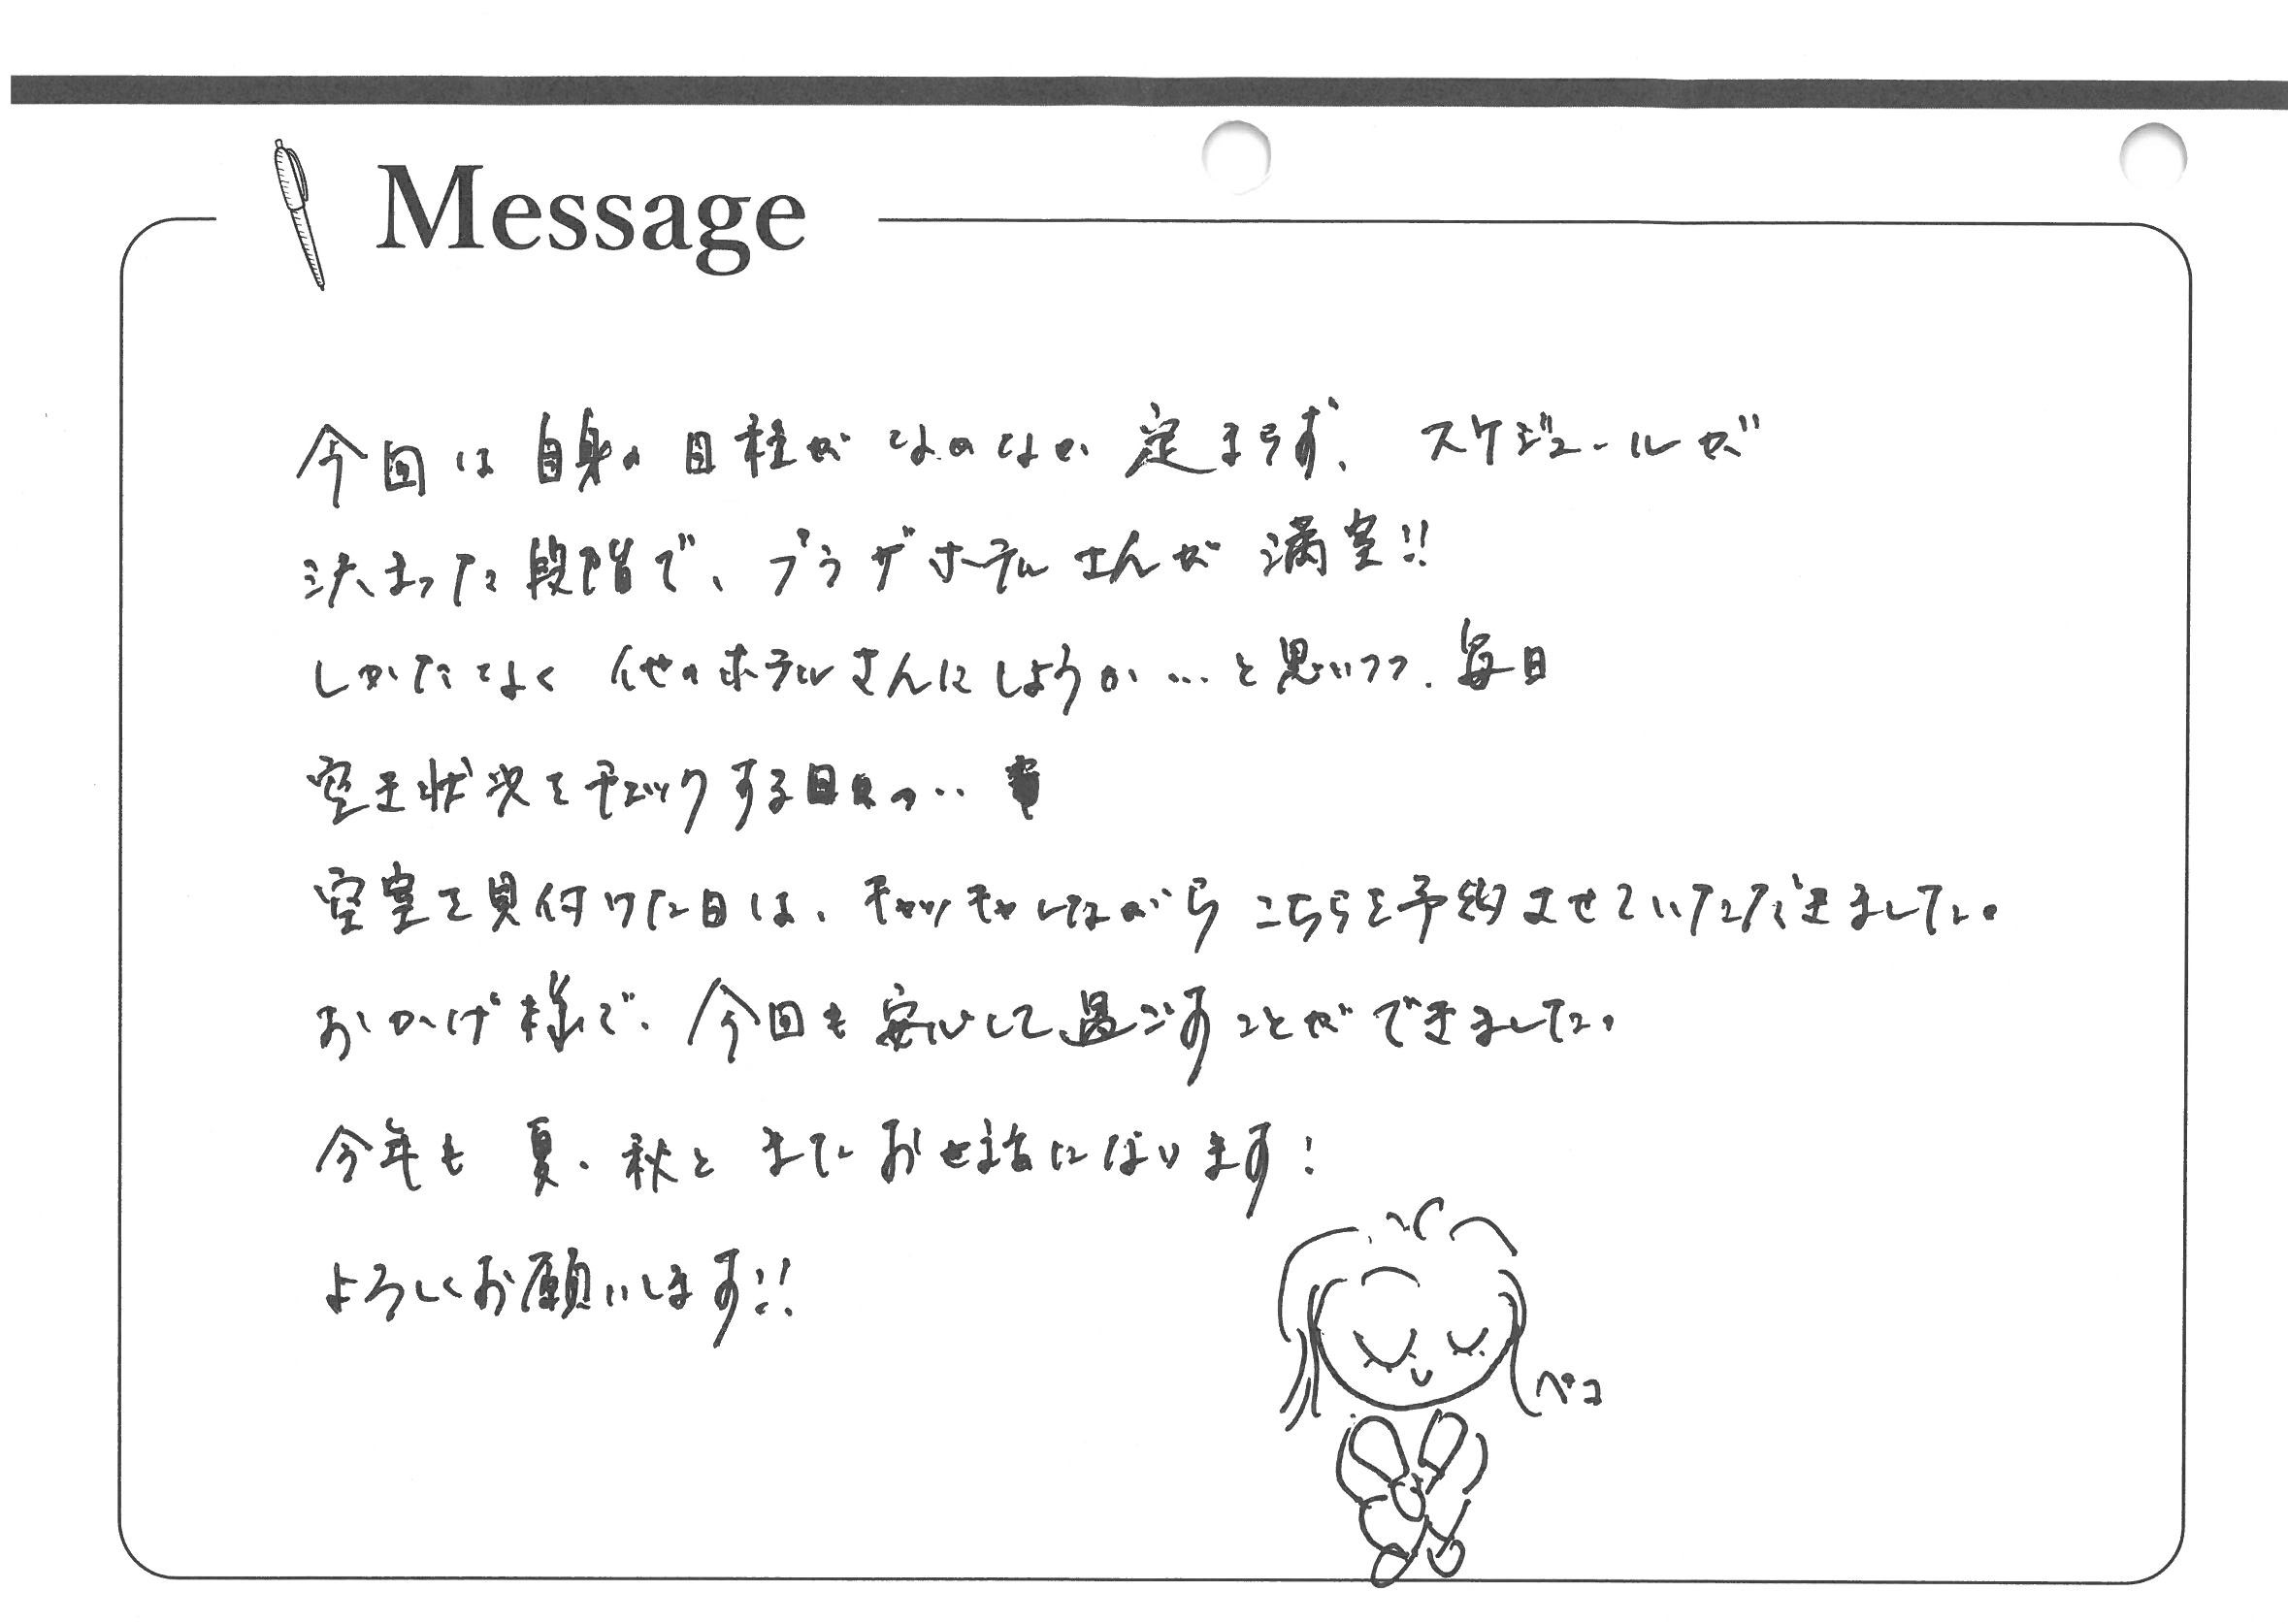 Message
今回は自身の日程がなかなか定まらず、スケジュールが
決まった段階で、プラザホテルさんが満室!!
しかたなく他のホテルさんにしようか…と思いつつ、毎日
空き状況をチェックする日々っ…
空室を見付けた日は、キャッキャしながらこちらを予約させていただきました。
おかげ様で、今回も安心して過ごすことができました。
今年も夏、秋とまたお世話になります!
よろしくお願いします!!
ペコ